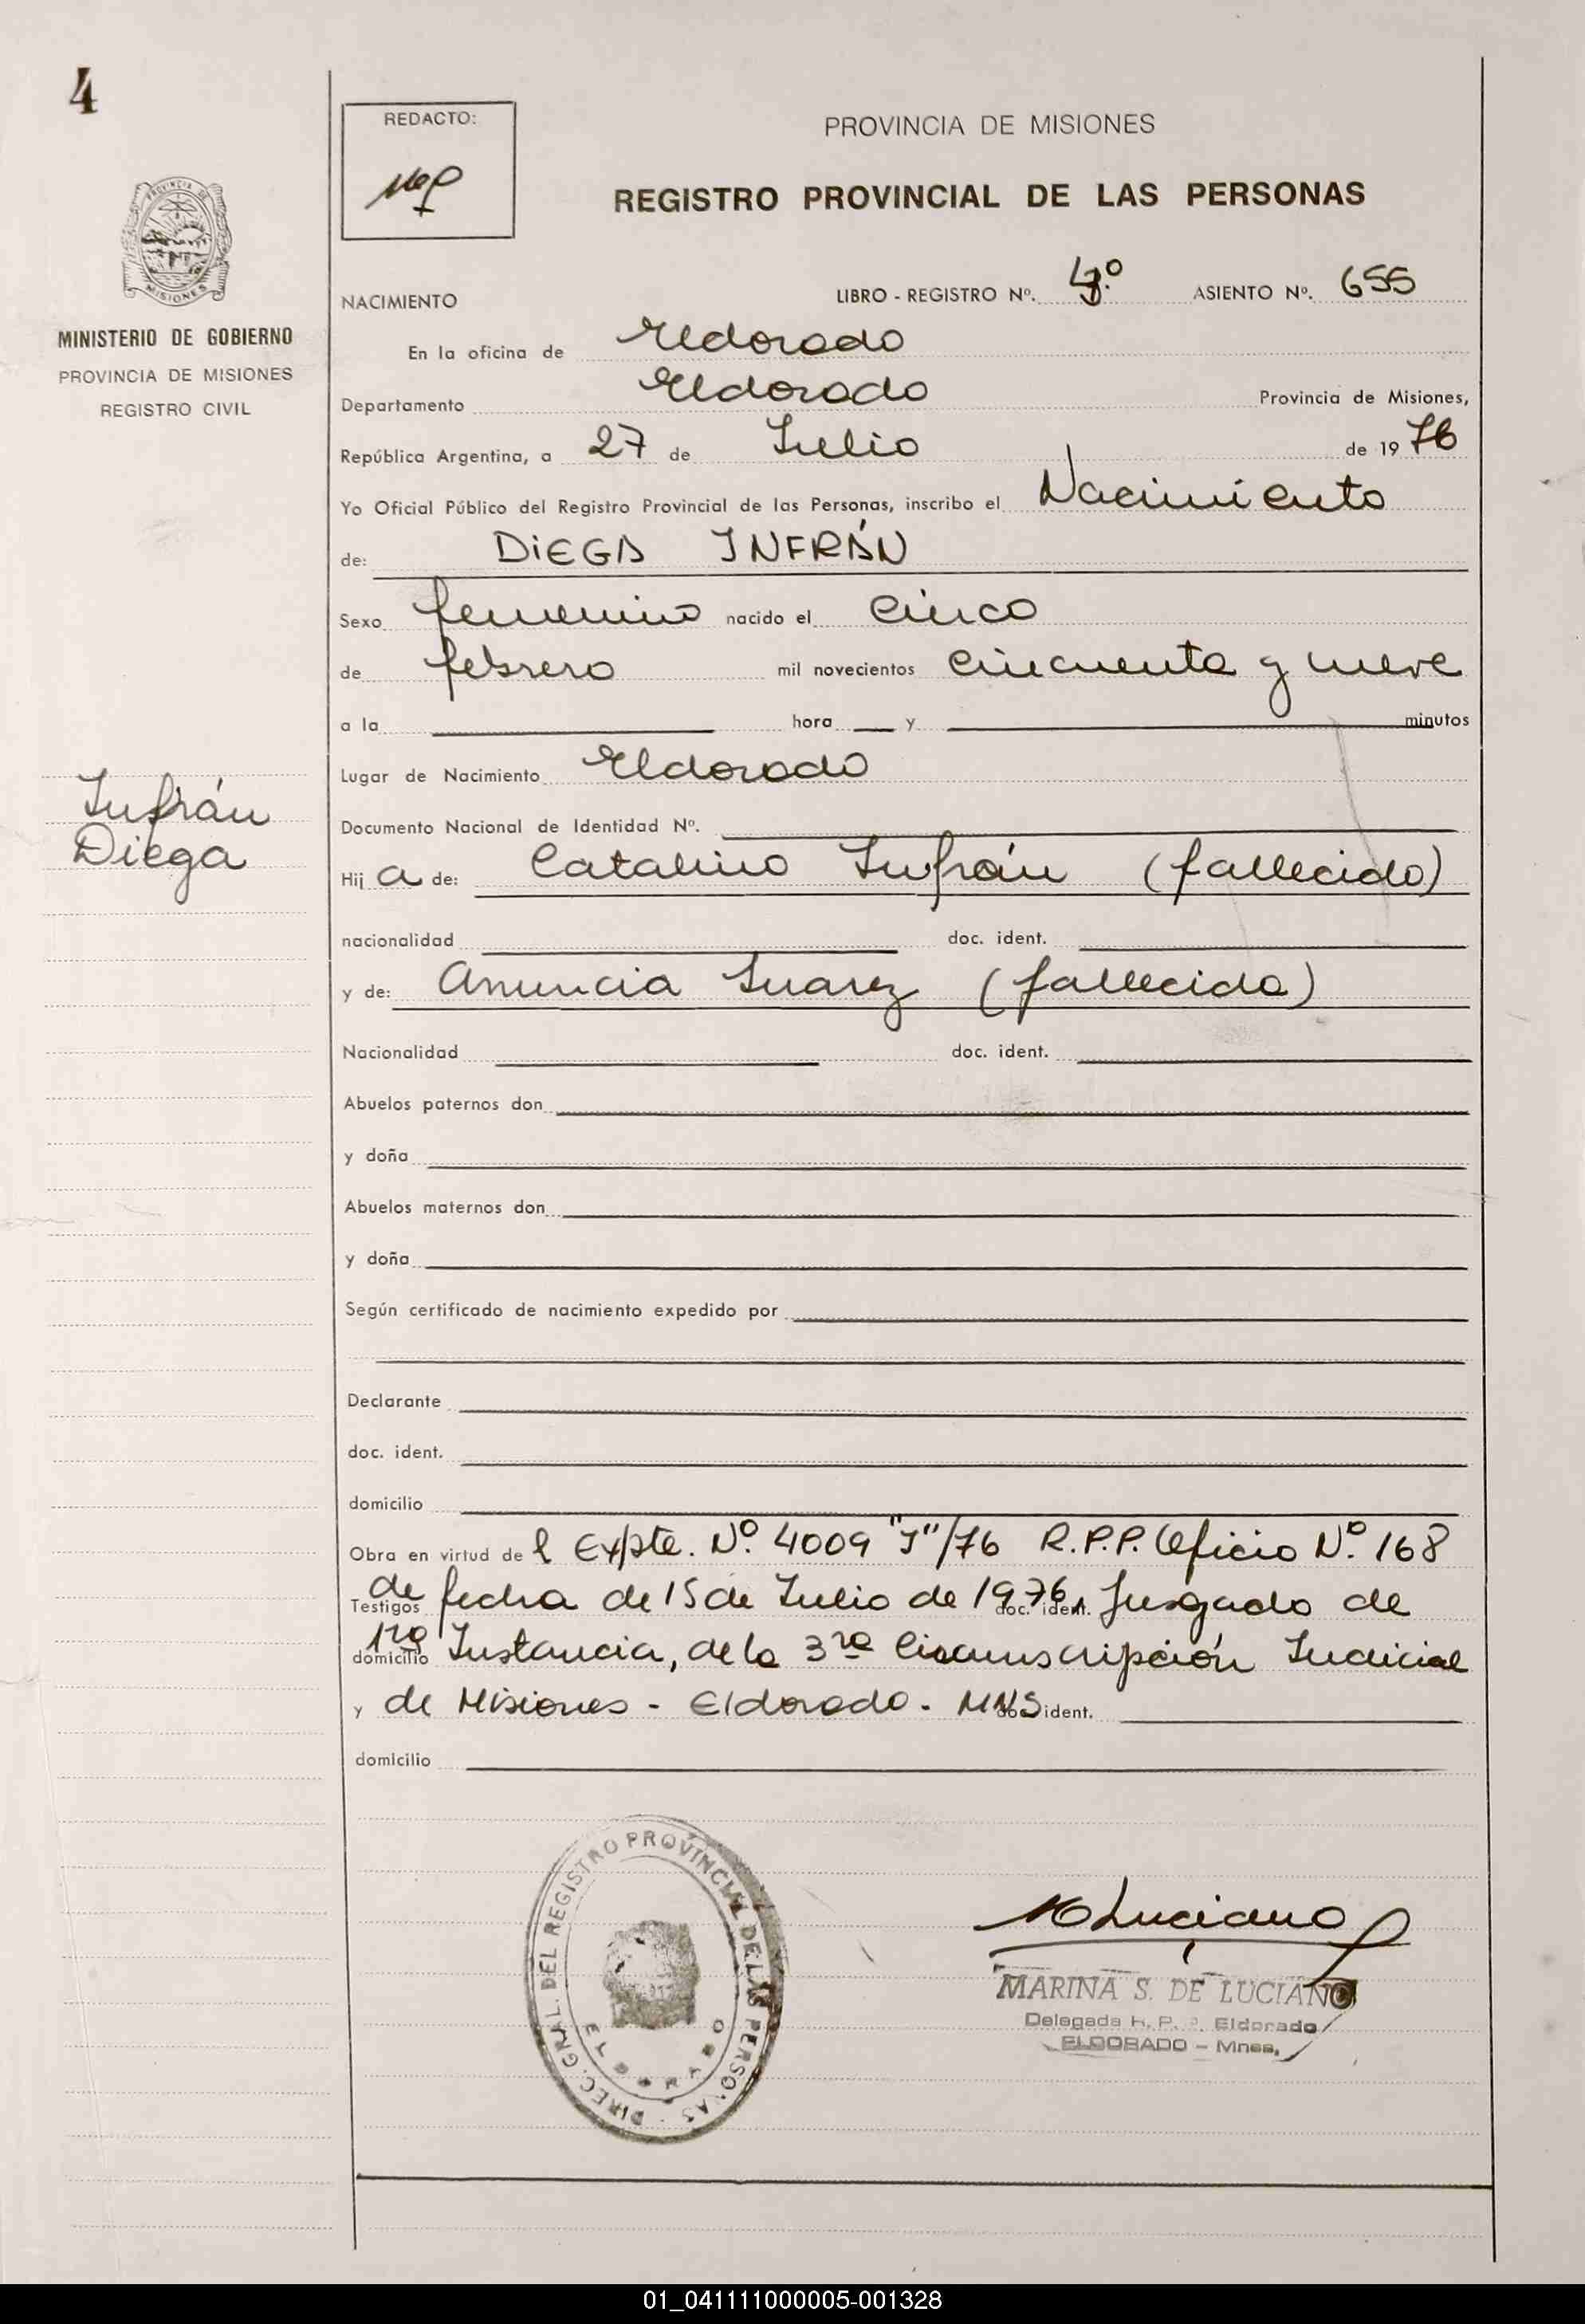 4
REDACTO:
PROVINCIA DE MISIONES
REGISTRO PROVINCIAL DE LAS PERSONAS
PROVINCIA DE
MISIONES
MINISTERIO DE GOBIERNO
PROVINCIA DE MISIONES
REGISTRO CIVIL
NACIMIENTO
LIBRO - REGISTRO Nº. ASIENTO Nº. 655
En la oficina de Eldorado
Departamento Eldorado Provincia de Misiones,
República Argentina, a 27 de Julio de 19 76
Yo Oficial Público del Registro Provincial de las Personas, inscribo el Nacimiento
de: DIEGA INFRÁN
Sexo femenino nacido el cinco
de febrero mil novecientos cincuenta y nueve
a la hora y minutos
Lugar de Nacimiento Eldorado
Infrán
Diega
Documento Nacional de Identidad Nº.
Hij a de: Catalino Infrán (fallecido)
nacionalidad doc. ident.
y de: Anuncia Suarez (fallecida)
Nacionalidad doc. ident.
Abuelos paternos don
y doña
Abuelos maternos don
y doña
Según certificado de nacimiento expedido por
Declarante
doc. ident.
domicilio
Obra en virtud de l Expte. Nº. 4009 "I"/76 R.P.P. Oficio Nº. 168
Testigos de fecha de 15 de Julio de 1976, doc. ident. Juzgado de
domicilio 1ra Instancia, de la 3ra Circunscripción Judicial
y de Misiones - Eldorado. MNS ident.
domicilio
DIREC. GRAL. DEL REGISTRO PROVINCIAL DE LAS PERSONAS
ELDORADO
Luciano
MARINA S. DE LUCIANO
Delegada R. P. P. Eldorado
ELDORADO - Mnes.
01_041111000005-001328